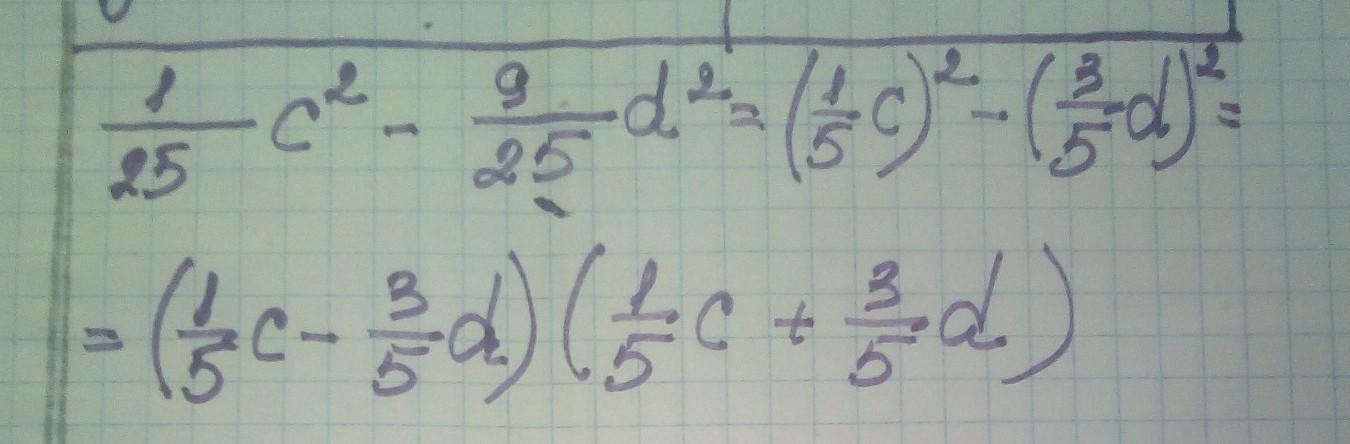 1/25 c² - 9/25 d² = (1/5 c)² - (3/5 d)² =
= (1/5 c - 3/5 d) (1/5 c + 3/5 d)